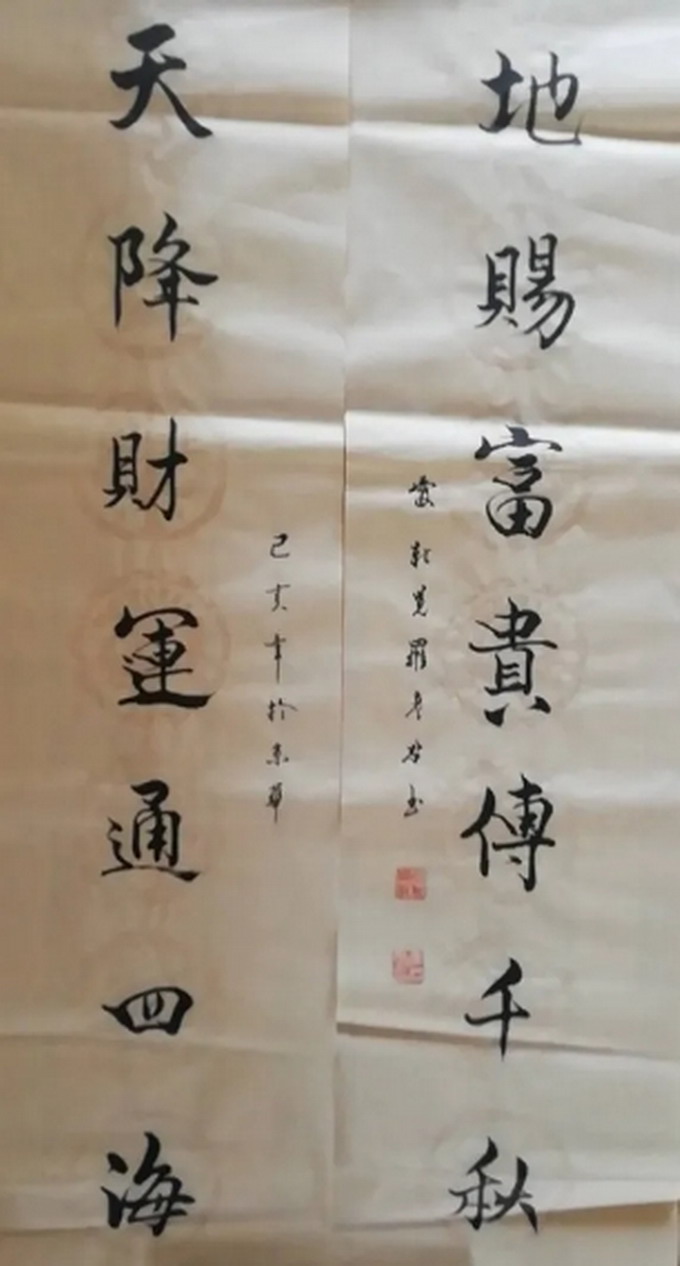 天降財運通四海
己亥年於京華
地賜富貴傳千秋